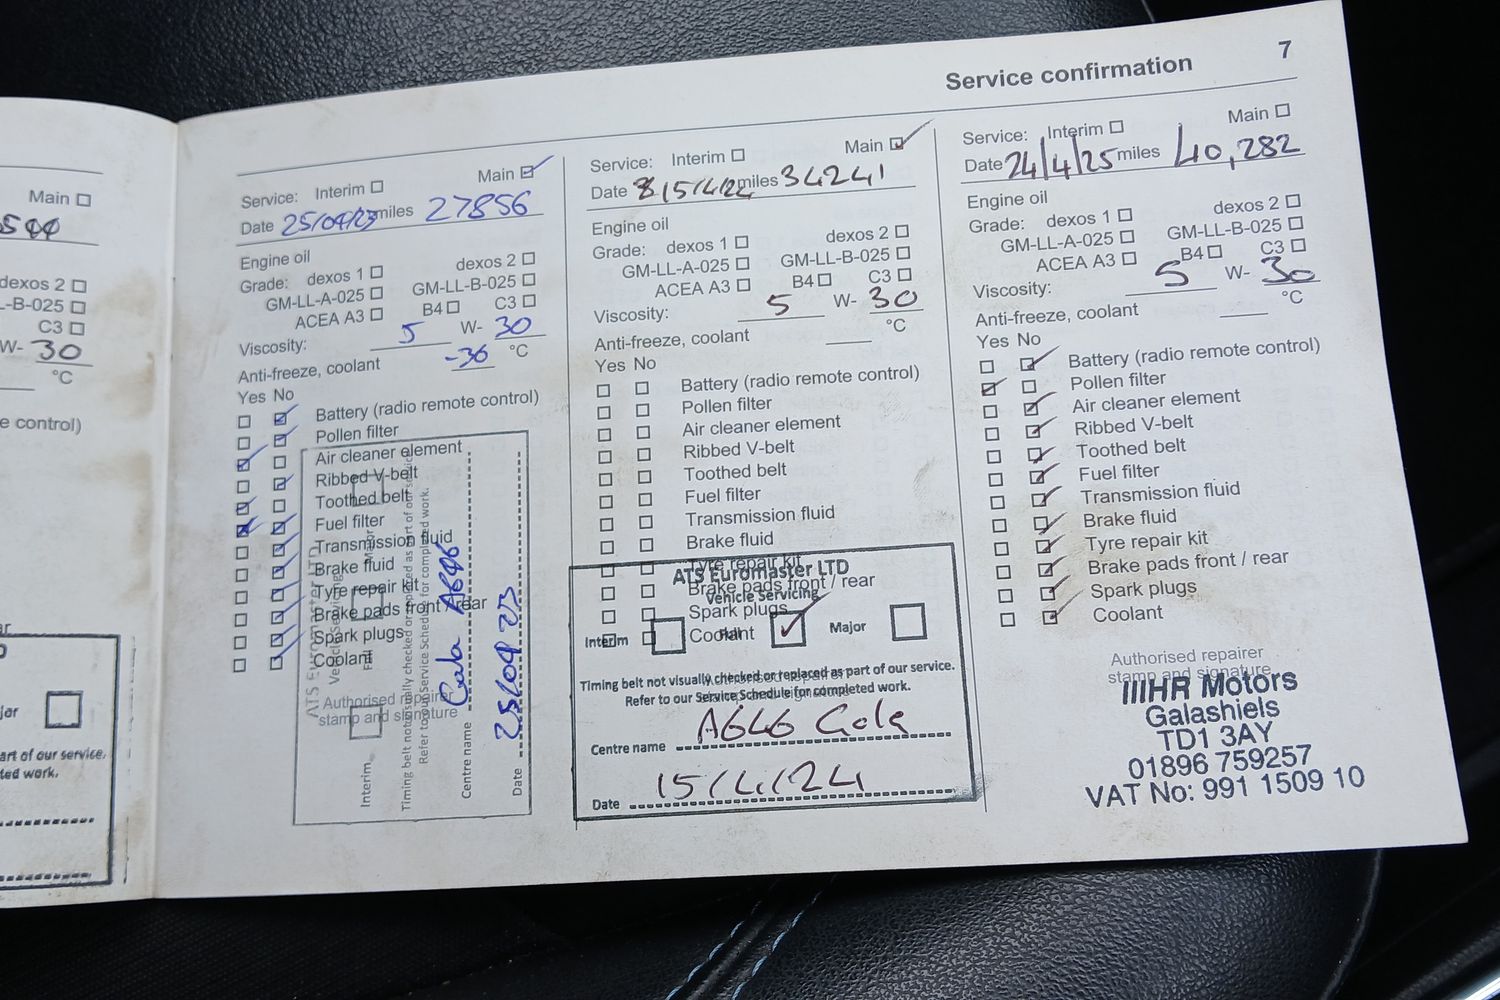 7
Service confirmation
Main
W- 30
°C
C3
art of our service.
Service: Interim Main
Date 25/04/23 miles 27856
Engine oil
Grade: dexos 1 dexos 2
GM-LL-A-025 GM-LL-B-025
ACEA A3 B4 C3
Viscosity: 5 W- 30
Anti-freeze, coolant -36 °C
Yes No
Battery (radio remote control)
Pollen filter
Air cleaner element
Ribbed V-belt
Toothed belt
Fuel filter
Transmission fluid
Brake fluid
Tyre repair kit
Brake pads front / rear
Spark plugs
Coolant
Authorised repairer
stamp and signature
ATS Euromaster LTD
Vehicle Servicing
Interim Full Major
Timing belt not visually checked or replaced as part of our service.
Refer to our Service Schedule for completed work.
Centre name Gala A646
Date 25/04/23
Service: Interim Main
Date 15/4/24 miles 34241
Engine oil
Grade: dexos 1 dexos 2
GM-LL-A-025 GM-LL-B-025
ACEA A3 B4 C3
Viscosity: 5 W- 30
Anti-freeze, coolant °C
Yes No
Battery (radio remote control)
Pollen filter
Air cleaner element
Ribbed V-belt
Toothed belt
Fuel filter
Transmission fluid
Brake fluid
Tyre repair kit
Brake pads front / rear
Spark plugs
Coolant
ATS Euromaster LTD
Vehicle Servicing
Interim Full Major
Timing belt not visually checked or replaced as part of our service.
Refer to our Service Schedule for completed work.
Centre name A646 Gala
Date 15/4/24
Service: Interim Main
Date 24/4/25 miles 40,282
Engine oil
Grade: dexos 1 dexos 2
GM-LL-A-025 GM-LL-B-025
ACEA A3 B4 C3
Viscosity: 5 W- 30
Anti-freeze, coolant °C
Yes No
Battery (radio remote control)
Pollen filter
Air cleaner element
Ribbed V-belt
Toothed belt
Fuel filter
Transmission fluid
Brake fluid
Tyre repair kit
Brake pads front / rear
Spark plugs
Coolant
Authorised repairer
stamp and signature
HR Motors
Galashiels
TD1 3AY
01896 759257
VAT No: 991 1509 10